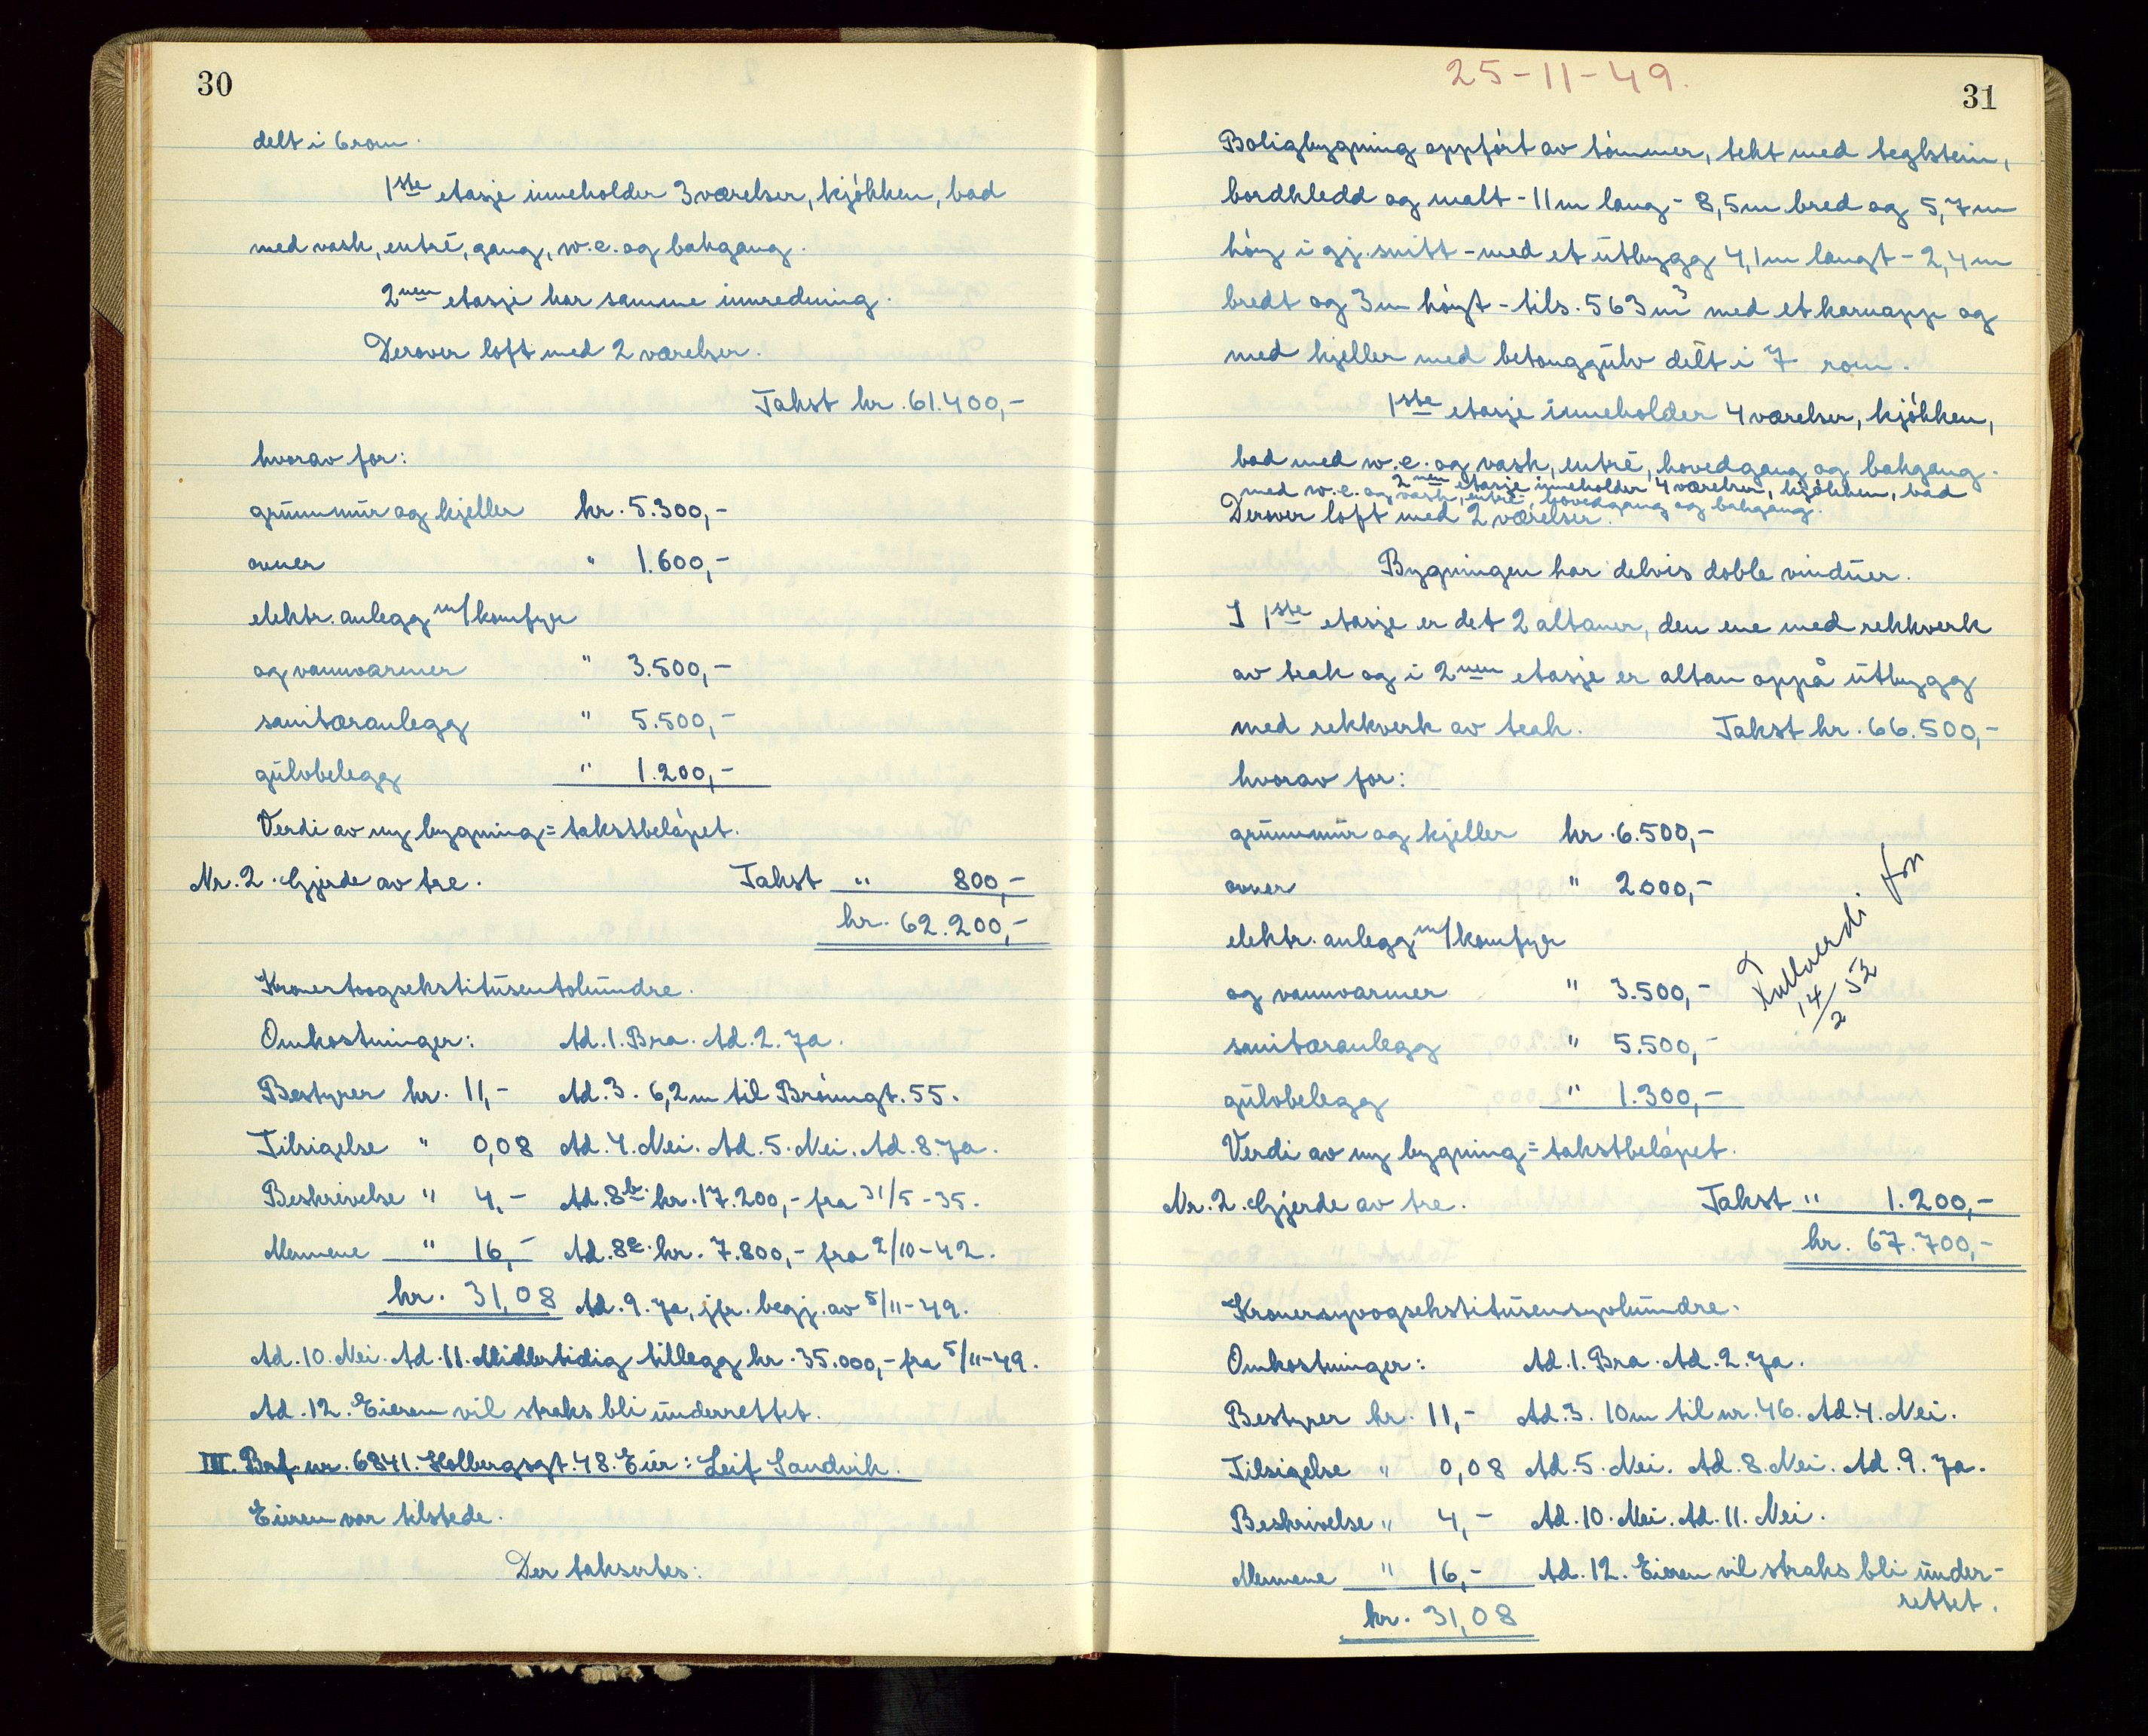 30
delt i 6 rom.
1ste etasje inneholder 3 værelser, kjøkken, bad
med vask, entré, gang, w.c. og bakgang.
2nen etasje har samme innredning.
Derover loft med 2 værelser.
Takst kr. 61.400,-
hvorav for:
grunnmur og kjeller kr. 5.300,-
ovner " 1.600,-
elektr. anlegg m/komfyr
og vannvarmer " 3.500,-
sanitæranlegg " 5.500,-
gulvbelegg " 1.200,-
Verdi av ny bygning = takstbeløpet.
Nr. 2. Gjerde av tre. Takst " 800,-
kr. 62.200,-
Kronertoogsekstitusentohundre.
Omkostninger: Ad. 1. Bra. Ad. 2. Ja.
Bestyrer kr. 11,- Ad. 3. 6,2 m til Brönngt. 55.
Tilsigelse " 0,08 Ad. 4. Nei. Ad. 5. Nei. Ad. 8. Ja.
Beskrivelse " 4,- Ad. 8b. kr. 17.200,- fra 31/5-35.
Mennene " 16,- Ad. 8c. kr. 7.800,- fra 2/10-42.
kr. 31,08 Ad. 9. Ja, jfr. begj. av 5/11-49.
Ad. 10. Nei. Ad. 11. Midlertidig tillegg kr. 35.000,- fra 5/11-49.
Ad. 12. Eieren vil straks bli underrettet.
III. Brf. nr. 6841. Holbergsgt. 48. Eier: Leif Sandvik.
Eieren var tilstede.
Der takseres:
25-11-49.
31
Boligbygning oppført av tømmer, tekt med teglstein,
bordkledd og malt - 11 m lang - 8,5 m bred og 5,7 m
høy i gj. snitt - med et utbygg 4,1 m langt - 2,4 m
bredt og 3 m høyt - tils. 563 m³ med et karnapp og
med kjeller med betonggulv delt i 7 rom.
1ste etasje inneholder 4 værelser, kjøkken,
bad med w.c. og vask, entré, hovedgang og bakgang.
2nen etasje inneholder 4 værelser, kjøkken, bad
med w.c. og vask, entré, hovedgang og bakgang.
Derover loft med 2 værelser.
Bygningen har delvis doble vinduer.
I 1ste etasje er det 2 altaner, den ene med rekkverk
av teak og i 2nen etasje er altan oppå utbygg
med rekkverk av teak. Takst kr. 66.500,-
hvorav for:
grunnmur og kjeller kr. 6.500,-
ovner " 2.000,-
elektr. anlegg m/komfyr
og vannvarmer " 3.500,-
sanitæranlegg " 5.500,-
gulvbelegg " 1.300,-
Fullverdi fra
14/2 52
Verdi av ny bygning = takstbeløpet.
Nr. 2. Gjerde av tre. Takst " 1.200,-
kr. 67.700,-
Kronersyvogsekstitusensyvhundre.
Omkostninger: Ad. 1. Bra. Ad. 2. Ja.
Bestyrer kr. 11,- Ad. 3. 10 m til nr. 46. Ad. 4. Nei.
Tilsigelse " 0,08 Ad. 5. Nei. Ad. 8. Nei. Ad. 9. Ja.
Beskrivelse " 4,- Ad. 10. Nei. Ad. 11. Nei.
Mennene " 16,- Ad. 12. Eieren vil straks bli under-
rettet.
kr. 31,08